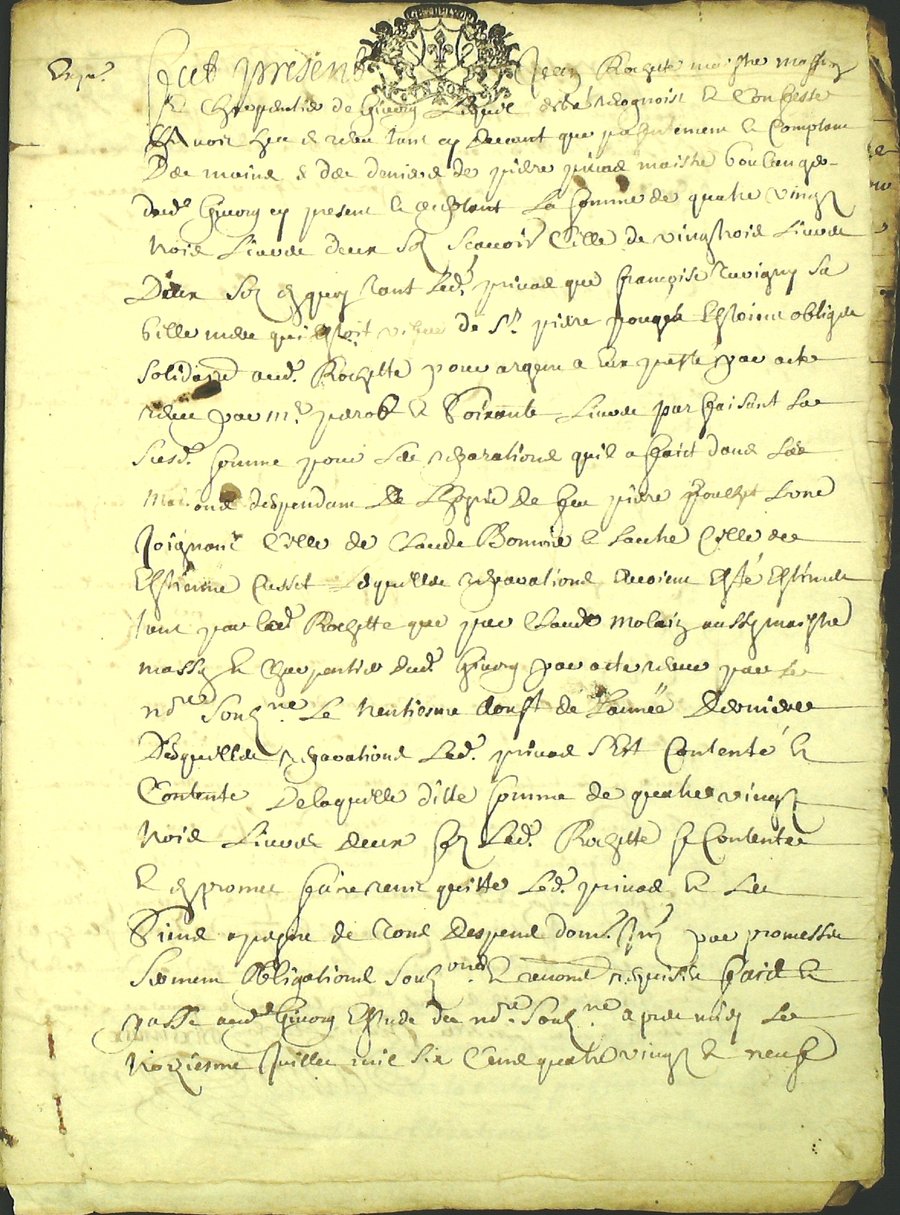 Expé.
Fut présent Jean Rochette maistre masson
et Charpentier de Givors Lequel a recognoist et Confesse
avoir heu et receu tant cy devant que présentement et Comptant
Des mains et des deniers de pierre privas maistre boulanger
dud. Givors cy present et acceptant La somme de quatre vingt
trois Livres deux sols Scavoir Celle de vingt trois Livres
Deux sols en quoy tant Led. privas que françoise Ravigny sa
belle mere qui estoit vefve de Sr. pierre Estoient obligés
solidaires aud. Rochette pour argent a eux presté par acte
receu par me parost et Soixante Livres par faisant La
susd. somme pour Les reparations quil a faict dans Les
Maisons despendants de de feu pierre Lune
Joignant Celle de Claude Bonnois et Lautre Celle de
Estienne Cusset Lesquelles reparations avoient Esté Estimés
tant par Led. Rochette que par Claude molais aussy maistre
masson et Charpentier dud. Givors par acte receu par Le
nore soubne Le trentiesme aoust de L'année Derniere
Desquelles reparations Led. privas s'Est Contenté et
Contente De laquelle ditte somme de quatre vingt
trois Livres deux sols Led. Rochette se Contente
et en promet faire tenir quitte Led. privas et Les
Siens a peyne de tous despens dom. Jnt. par promesses
Serment Obligations Soubons et renons requises faict et
passé aud. Givors Estude du nore soubne apres midy Le
troiziesme Juillet mil six Cents quatre vingt et neuf